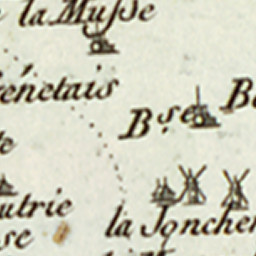 la Musse
énetais
B.se
B
te
utrie
la Jonche
se